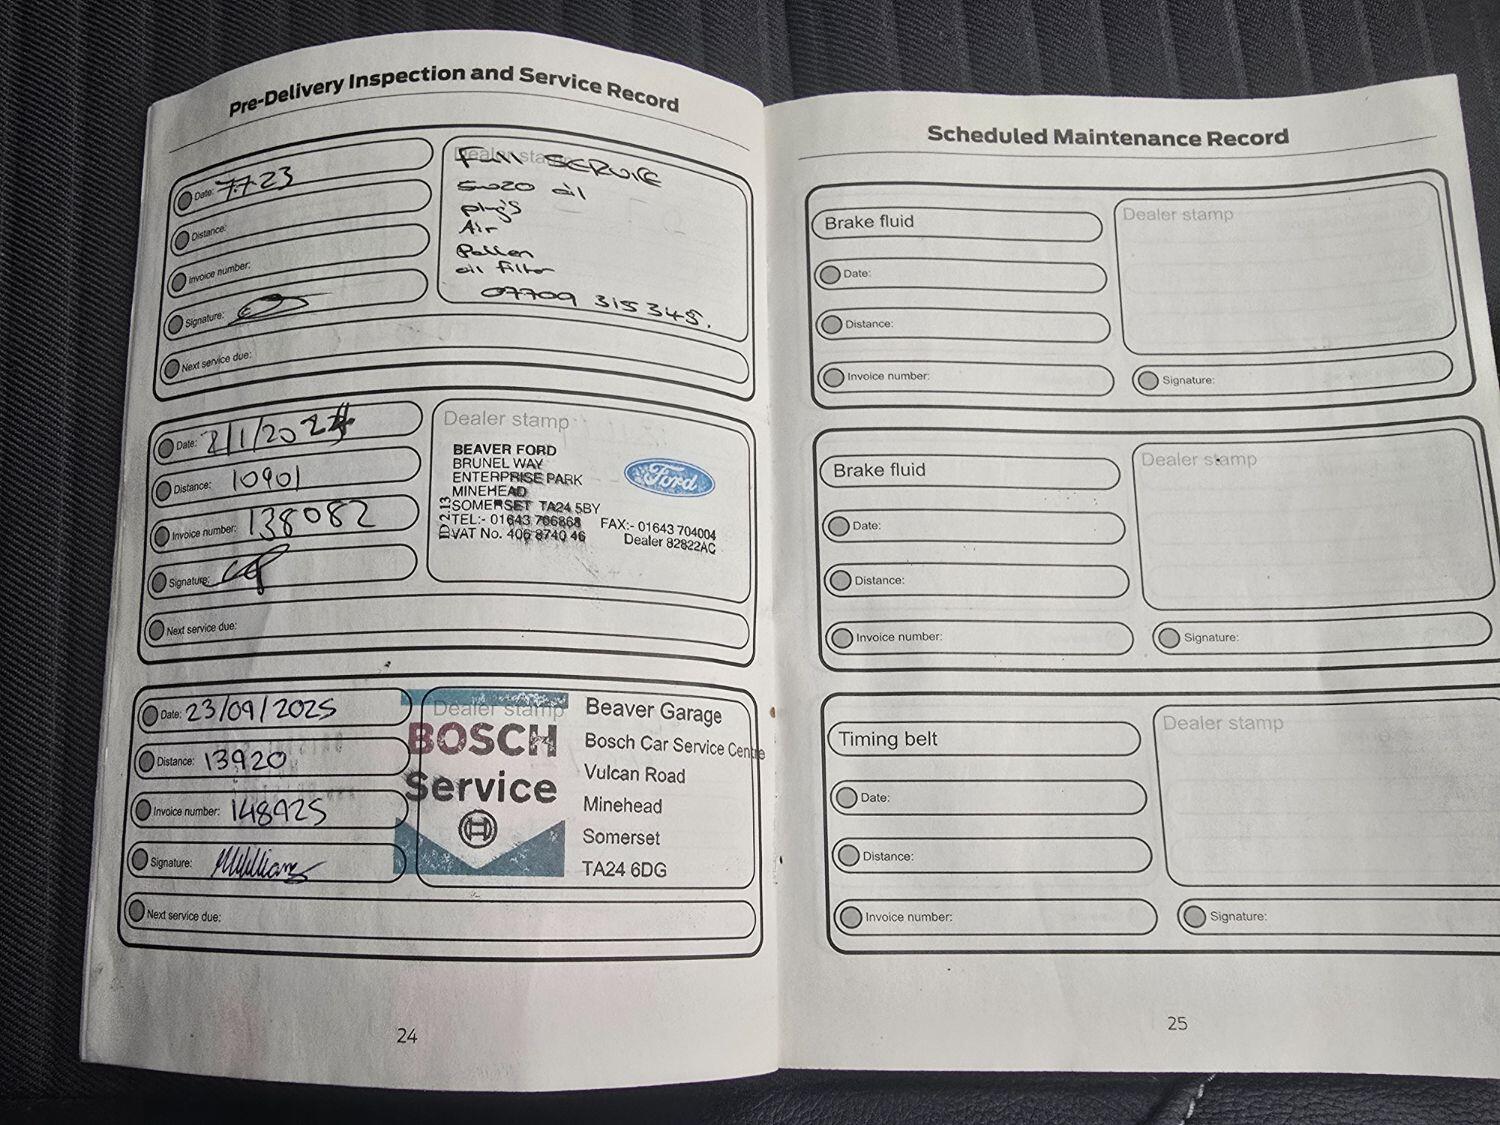 Pre-Delivery Inspection and Service Record
Date: 7.7.23
Distance:
Invoice number:
Signature:
Next service due:
Dealer stamp
Full SERVICE
5w20 oil
plug's
Air
Pollen
oil filter
07709 315345.
Date: 2/1/2024
Distance: 10901
Invoice number: 138082
Signature:
Next service due:
Dealer stamp
BEAVER FORD
BRUNEL WAY
ENTERPRISE PARK
MINEHEAD
SOMERSET TA24 5BY
TEL:- 01643 706868 FAX:- 01643 704004
VAT No. 406 8740 46 Dealer 82822AC
Ford
Date: 23/09/2025
Distance: 13920
Invoice number: 148925
Signature: MWilliams
Next service due:
Dealer stamp
BOSCH
Service
Beaver Garage
Bosch Car Service Centre
Vulcan Road
Minehead
Somerset
TA24 6DG
24
Scheduled Maintenance Record
Brake fluid
Date:
Distance:
Invoice number:
Dealer stamp
Signature:
Brake fluid
Date:
Distance:
Invoice number:
Dealer stamp
Signature:
Timing belt
Date:
Distance:
Invoice number:
Dealer stamp
Signature:
25